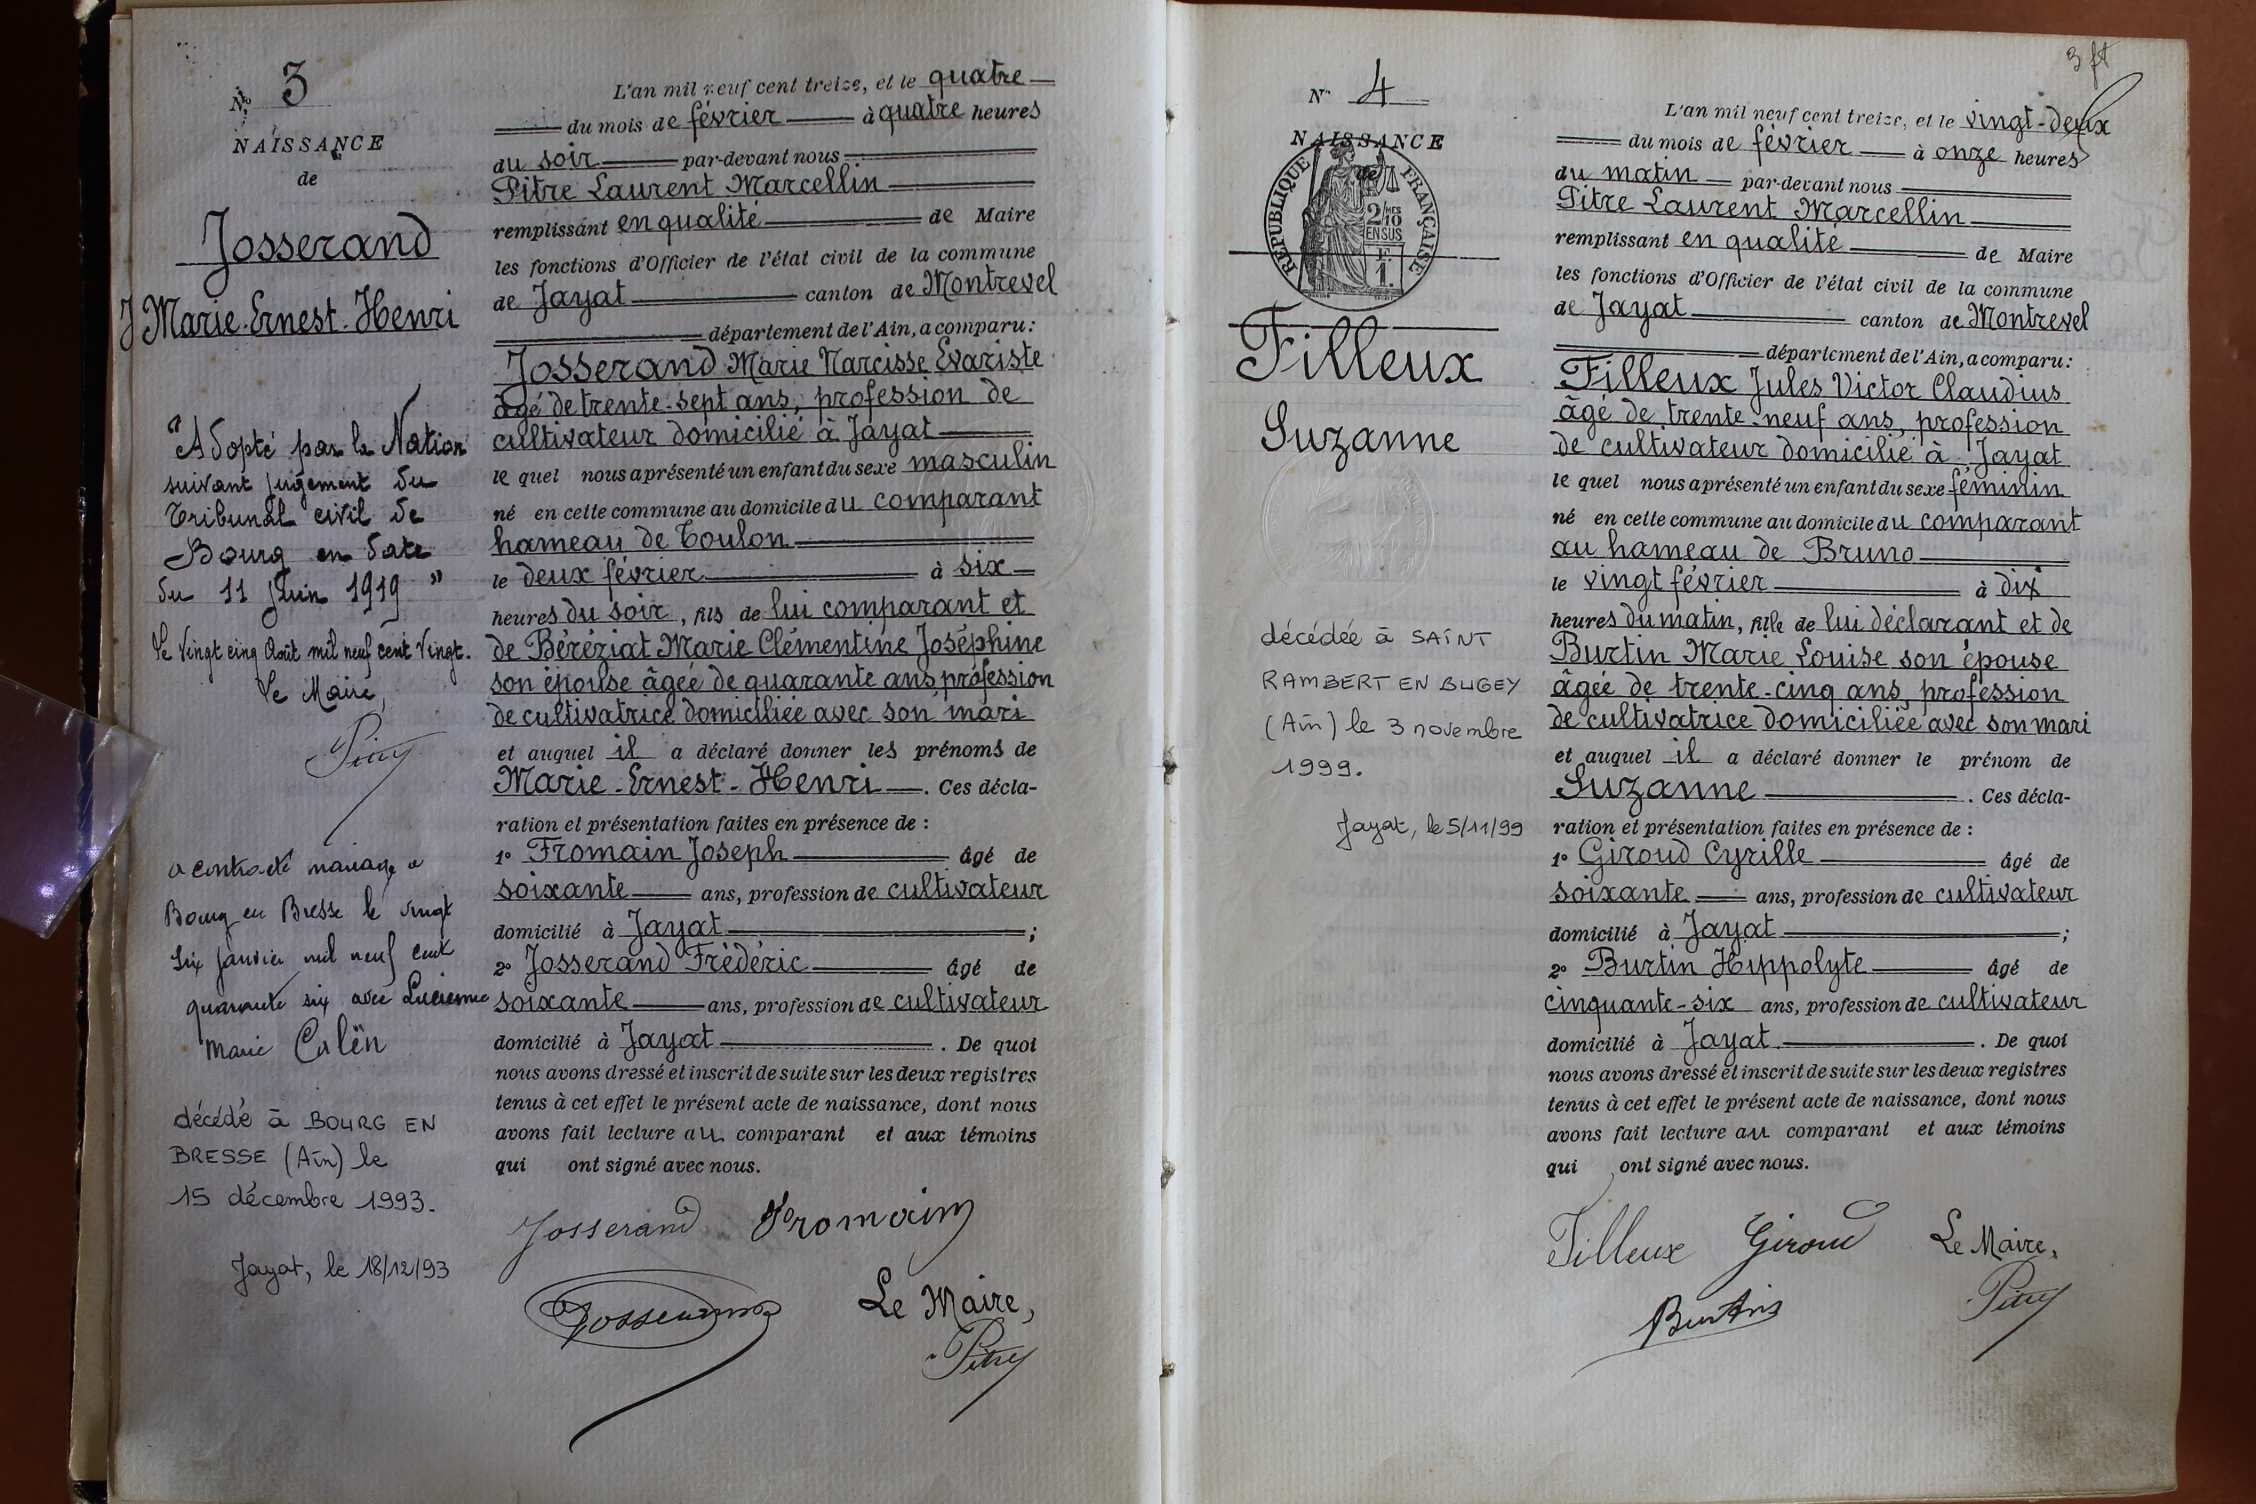 N° 3
NAISSANCE
de
Josserand
Marie-Ernest-Henri
"Adopté par la Nation
suivant jugement du
Tribunal civil de
Bourg en date
du 11 Juin 1919"
Le vingt cinq Août mil neuf cent vingt.
Le Maire,
Pitre
a contracté mariage à
Bourg en Bresse le vingt
six janvier mil neuf cent
quarante six avec Lucienne
Marie
décédé à BOURG EN
BRESSE (Ain) le
15 décembre 1993.
Jayat, le 18/12/93
L'an mil neuf cent treize, et le quatre
du mois de février à quatre heures
du soir par-devant nous
Pitre Laurent Marcellin
remplissant en qualité de Maire
les fonctions d'Officier de l'état civil de la commune
de Jayat canton de Montrevel
département de l'Ain, a comparu :
Josserand Marie Narcisse Evariste
âgé de trente-sept ans, profession de
cultivateur domicilié à Jayat
le quel nous a présenté un enfant du sexe masculin
né en cette commune au domicile du comparant
hameau de Toulon
le deux février à six
heures du soir, fils de lui comparant et
de Béréziat Marie Clémentine Joséphine
son épouse âgée de quarante ans, profession
de cultivatrice domiciliée avec son mari
et auquel il a déclaré donner les prénoms de
Marie-Ernest-Henri. Ces décla-
ration et présentation faites en présence de :
1° Fromain Joseph âgé de
soixante ans, profession de cultivateur
domicilié à Jayat ;
2° Josserand Frédéric âgé de
soixante ans, profession de cultivateur
domicilié à Jayat. De quoi
nous avons dressé et inscrit de suite sur les deux registres
tenus à cet effet le présent acte de naissance, dont nous
avons fait lecture au comparant et aux témoins
qui ont signé avec nous.
Josserand Fromain
Josserand Le Maire,
Pitre
3 ft
N° 4
NAISSANCE
de
RÉPUBLIQUE FRANÇAISE
2/10MES
EN SUS
F.
1.
Filleux
Suzanne
décédée à SAINT
RAMBERT EN BUGEY
(Ain) le 3 novembre
1999.
Jayat, le 5/11/99
L'an mil neuf cent treize, et le vingt-deux
du mois de février à onze heures
du matin par-devant nous
Pitre Laurent Marcellin
remplissant en qualité de Maire
les fonctions d'Officier de l'état civil de la commune
de Jayat canton de Montrevel
département de l'Ain, a comparu :
Filleux Jules Victor Claudius
âgé de trente-neuf ans, profession
de cultivateur domicilié à Jayat
le quel nous a présenté un enfant du sexe féminin
né en cette commune au domicile du comparant
au hameau de Bruno
le vingt février à dix
heures du matin, fille de lui déclarant et de
Burtin Marie Louise son épouse
âgée de trente-cinq ans, profession
de cultivatrice domiciliée avec son mari
et auquel il a déclaré donner le prénom de
Suzanne. Ces décla-
ration et présentation faites en présence de :
1° Giroud Cyrille âgé de
soixante ans, profession de cultivateur
domicilié à Jayat ;
2° Burtin Hippolyte âgé de
cinquante-six ans, profession de cultivateur
domicilié à Jayat. De quoi
nous avons dressé et inscrit de suite sur les deux registres
tenus à cet effet le présent acte de naissance, dont nous
avons fait lecture au comparant et aux témoins
qui ont signé avec nous.
Filleux Giroud Le Maire,
Burtin Pitre